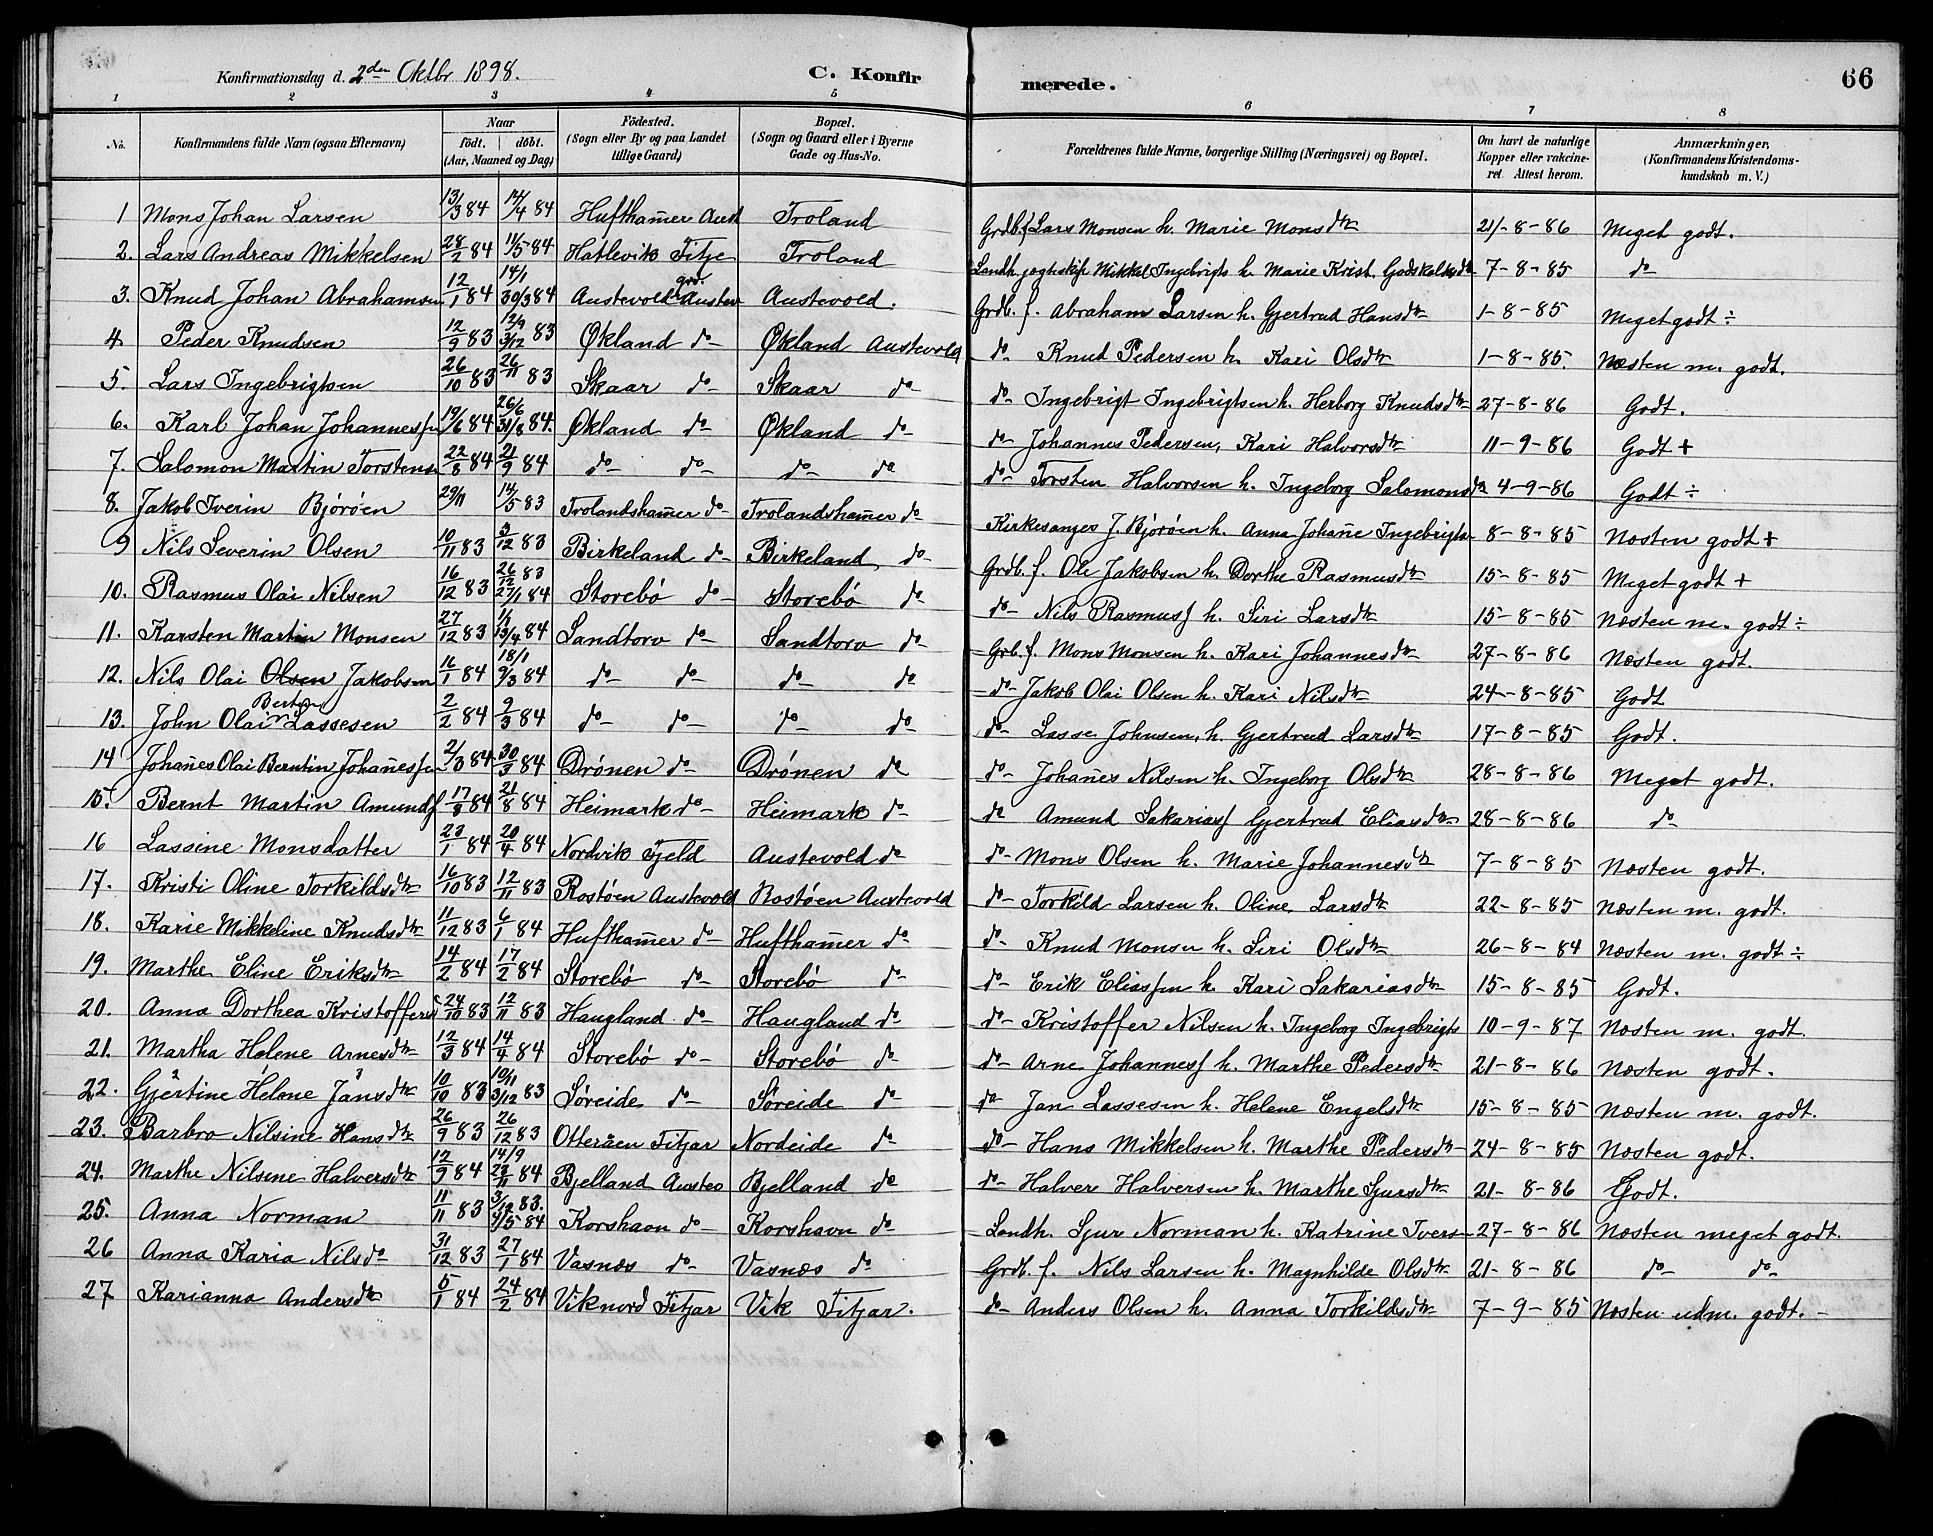 Konfirmationsdag d. 2den Oktbr 1898. C. Konfir merede. 66
1 2 3 4 5 6 7 8
No. Konfirmandens fulde Navn (ogsaa Efternavn) Naar födt. döbt. (Aar, Maaned og Dag) Födested. (Sogn eller By og paa Landet tillige Gaard) Bopæl. (Sogn og Gaard eller i Byerne Gade og Hus-No. Forældrenes fulde Navne, borgerlige Stilling (Næringsvei) og Bopæl. Om havt de naturlige Kopper eller vakcineret. Attest herom. Anmærkninger, (Konfirmandens Kristendomskundskab m. V.)
1 Mons Johan Larsen 13/3 84 14/4 84 Hufthamer Aust Troland Grdb. f Lars Monsen h. Marie Monsdtr 21-8-86 Meget godt.
2. Lars Andreas Mikkelsen 28/2 84 11/5 84 Hatlevik Fitje Troland Landh. jægteskip Mikkel Ingebrigts h. Marie Krist. Godskalksdtr 7-8-85 do
3. Knud Johan Abrahamsen 12/1 84 14/1 30/3 84 Austevold grd. Austev Austevold. Grdb. f. Abraham Larsen h. Gjertrud Hansdtr 1-8-85 Meget godt ÷
4 Peder Knudsen 12/9 83 12/9 3/12 83 Økland do Økland Austevold do Knud Pedersen h. Kari Olsdtr 1-8-85. Næsten m. godt.
5. Lars Ingebrigtsen 26/10 83 26/11 83 Skaar do Skaar do do Ingebrigt Ingebrigtsen h. Herborg Knudsdtr 27-8-86 Godt.
6. Karl Johan Johannessen 19/6 84 26/6 31/8 84. Økland do Økland do do Johannes Pedersen, Kari Halvorsdtr 11-9-86 Godt +
7. Salomon Martin Torstens 22/8 84 21/9 84 do do do do do Torsten Halvorsen h. Ingeborg Salomonsdtr 4-9-86 Godt ÷
8. Jakob Iverin Bjørøen 29/11 14/5 83 Trolandshamer do Trolandshamer do Kirkesanger J. Bjørøen h. Anna Johane Ingebrigts 8-8-85 Næsten godt +
9 Nils Severin Olsen 10/11 83 3/12 83 Birkeland do Birkeland do Grdb. f. Ole Jakobsen h. Dorthe Rasmusdtr 15-8-85 Meget godt +
10. Rasmus Olai Nilsen 16/12 83 26/12 83 27/1 84 Storebö do Storebö do do Nils Rasmuss h. Siri Larsdtr 15-8-85 Næsten m. godt ÷
11. Karsten Martin Monsen 27/12 83 1/1 13/4 84 Sandtorv do Sandtorv do Grb. f. Mons Monsen h. Kari Johannesdtr 27-8-86 Næsten godt.
12. Nils Olai Olsen Jakobsen 16/1 84 18/1 9/3 84 do do do do do Jakob Olai Olsen h. Kari Nilsdtr 24-8-85 Godt
13. John Olai Lassesen 2/2 84 9/3 84 do do do do do Lasse Johnsen, h. Gjertrud Larsdtr 17-8-85 Godt.
14 Johanes Olai Berntin Johanessen 2/3 84 30/3 84 Drönen do Drönen do do Johanes Nilsen h. Ingeborg Olsdtr 28-8-86 Meget godt.
15. Bernt Martin Amunds 17/8 84 21/8 84 Heimark do Heimark do do Amund Sakarias Gjertrud Eliasdtr 28-8-86 do
16 Lassine Monsdatter 23/1 84 20/4 84 Nordvik Fjeld Austevold do do Mons Olsen h. Marie Johannesdtr 7-8-85 Næsten godt.
17. Kristi Oline Torkildsdtr 16/10 83 12/11 83 Rostöen Austevold Rostöen Austevold do Torkild Larsen h. Oline Larsdtr 22-8-85 Næsten m. godt.
18. Karie Mikkeline Knudsdtr 11/12 83 6/1 84 Hufthamer do Hufthamer do do Knud Monsen h. Siri Olsdtr 26-8-84 Næsten m. godt ÷
19. Marthe Eline Eriksdtr 14/2 84 17/2 84 Storebö do Storebö do do Erik Eliassen h. Kari Sakariasdtr 15-8-85 Godt.
20. Anna Dorthea Kristoffers 24/10 83 12/11 83 Haugland do Haugland do do Kristoffer Nilsen h. Ingeborg Ingebrigts 10-9-87 Næsten m. godt.
21. Martha Helene Arnesdtr 12/3 84 14/4 84 Storebö do Storebö do do Arne Johanness h. Marthe Pedersdtr 21-8-86 Næsten godt.
22. Gjertine Helene Jansdtr 10/10 83 10/11 3/12 83 Søreide do Søreide do do Jan Lassesen h. Helene Engelsdtr 15-8-85 Næsten m. godt.
23. Barbro Nilsine Hansdtr 26/9 83 26/12 83 Otteråen Fitjar Nordeide do do Hans Mikkelsen h. Marthe Pedersdtr 24-8-85 Næsten godt.
24. Marthe Nilsine Halversdtr 12/9 84 14/9 23/11 84 Bjelland Austev Bjelland do do Halver Halversen h. Marthe Sjursdtr 21-8-86 Godt.
25. Anna Norman 11/11 83 3/12 83. 4/5 84 Korshavn do Korshavn do Landh. Sjur Norman h. Katrine Ivers 27-8-86 Næsten meget godt.
26 Anna Karia Nilsdr 31/12 83 27/1 84 Vasnæs do Vasnæs do Grdb. f. Nils Larsen h. Magnhilde Olsdtr 21-8-86 do do
27 Karianna Andersdtr 5/1 84 24/2 84 Viknord Fitjar Vik Fitjar. do Anders Olsen h. Anna Torkildsdtr 7-9-85 Næsten udm. godt. -